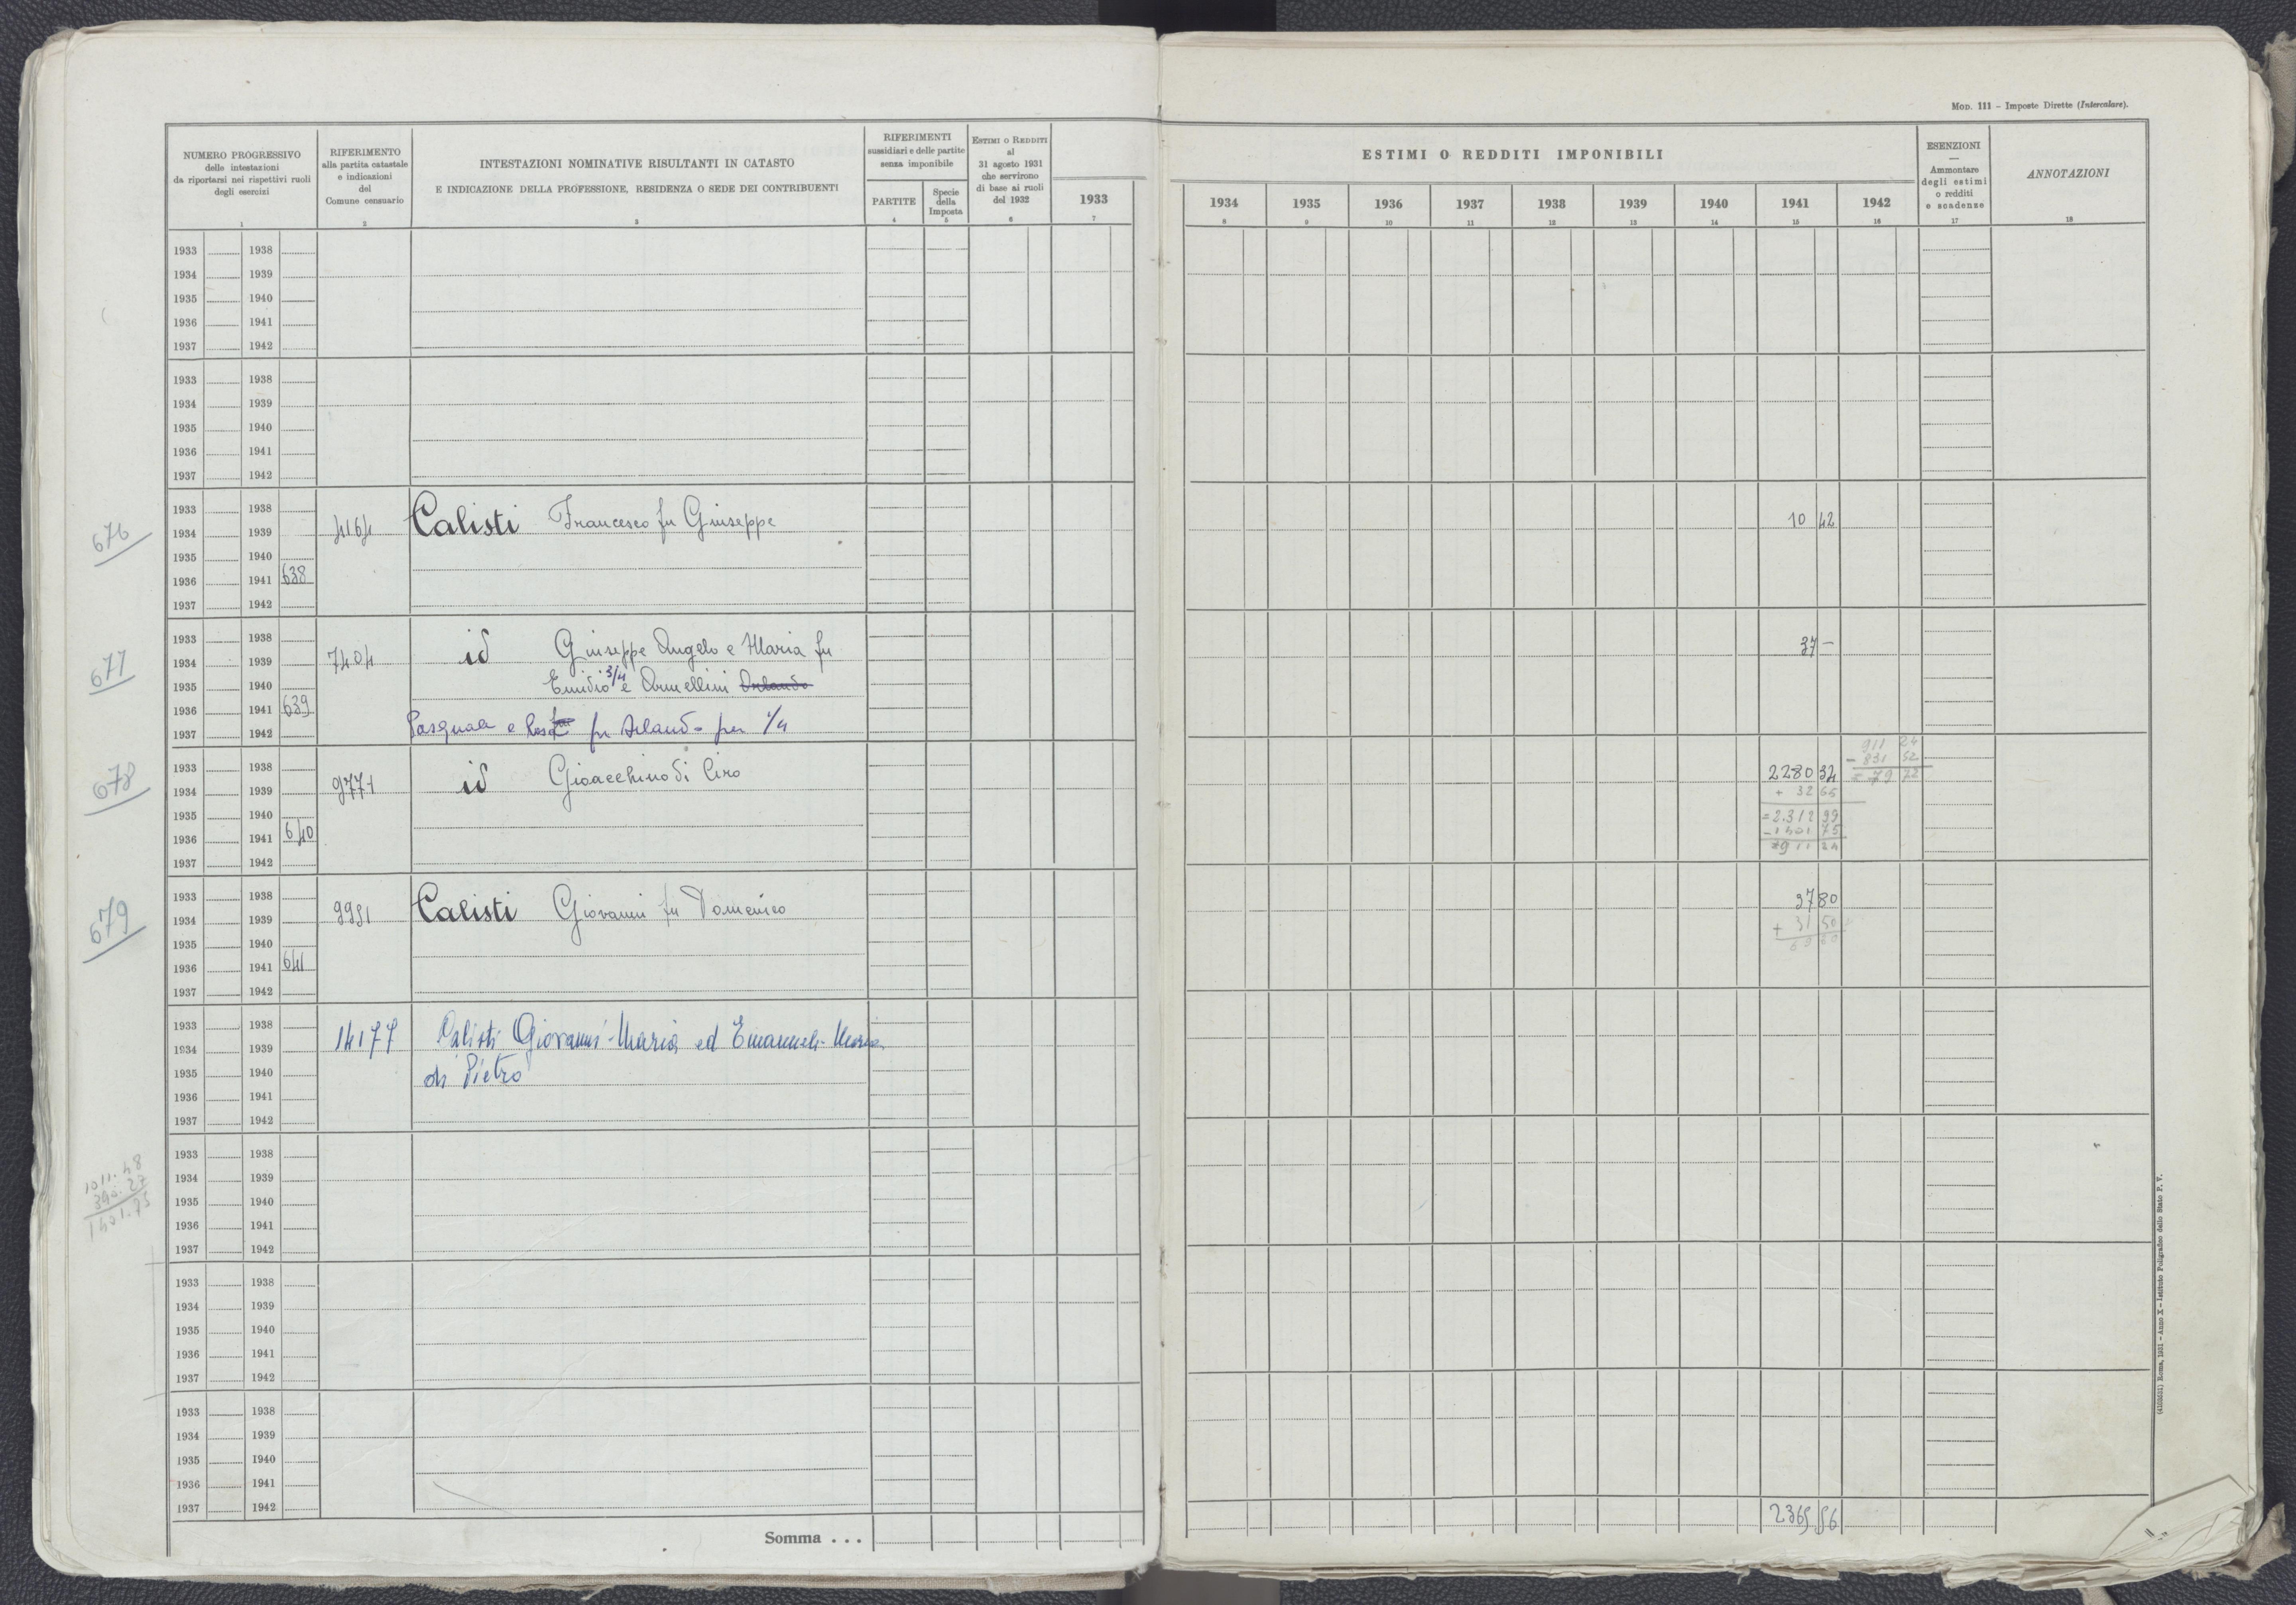 MOD. 111 – Imposte Dirette (Intercalare).
NUMERO PROGRESSIVO
delle intestazioni
da riportarsi nei rispettivi ruoli
degli esercizi
1
RIFERIMENTO
alla partita catastale
e indicazioni
del
Comune censuario
2
INTESTAZIONI NOMINATIVE RISULTANTI IN CATASTO
E INDICAZIONE DELLA PROFESSIONE, RESIDENZA O SEDE DEI CONTRIBUENTI
3
RIFERIMENTI
sussidiari e delle partite
senza imponibile
PARTITE
4
Specie
della
Imposta
5
ESTIMI O REDDITI
al
31 agosto 1931
che servirono
di base ai ruoli
del 1932
6
1933
7
ESTIMI O REDDITI IMPONIBILI
1934 1935 1936 1937 1938 1939 1940 1941 1942
8 9 10 11 12 13 14 15 16
ESENZIONI
—
Ammontare
degli estimi
o redditi
e scadenze
17
ANNOTAZIONI
18
1933 1938
1934 1939
1935 1940
1936 1941
1937 1942
1933 1938
1934 1939
1935 1940
1936 1941
1937 1942
676
1933 1938
1934 1939 4164 Calisti Francesco fu Giuseppe 10 42
1935 1940
1936 1941 638
1937 1942
677
1933 1938
1934 1939 7404 id Giuseppe Angelo e Maria fu 37 –
1935 1940 Emidio 3/4 e Armellini Orlando
1936 1941 639
1937 1942 Pasquale e fu Orlando per 1/4
678
1933 1938
1934 1939 9771 id Gioacchino di Ciro 2280 34
1935 1940 + 32 65
1936 1941 640 = 2.312 99
– 1401 75
= 911 24
1937 1942
911 24
– 831 52
= 79 72
679
1933 1938
1934 1939 9951 Calisti Giovanni fu Domenico 37 80
1935 1940 + 31 50
1936 1941 641
1937 1942
1933 1938
1934 1939 14177 Calisti Giovanni-Maria ed Emanuele-Maria
1935 1940 di Pietro
1936 1941
1937 1942
1011.48
390.27
1401.75
1933 1938
1934 1939
1935 1940
1936 1941
1937 1942
1933 1938
1934 1939
1935 1940
1936 1941
1937 1942
1933 1938
1934 1939
1935 1940
1936 1941
1937 1942
Somma . . . 2365 56
(4103531) Roma, 1931 – Anno X – Istituto Poligrafico dello Stato P. V.